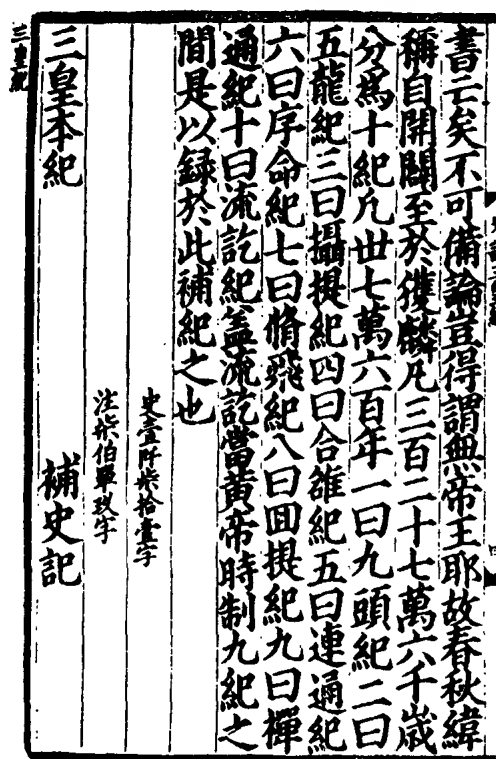 書云矣不可備論豈得謂無帝王耶故春秋緯
稱自開闢至於獲麟凡三百二十七萬六千歲
分爲十紀凡世七萬六百年一曰九頭紀二曰
五龍紀三曰攝提紀四曰合雒紀五曰連通紀
六曰序命紀七曰脩飛紀八曰囬提紀九曰禪
通紀十曰流訖紀蓋流訖當黃帝時制九紀之
間是以録於此補紀之也
史壹阡柒拾壹字
注柒伯單玖字
三皇本紀 補史記
三皇紀